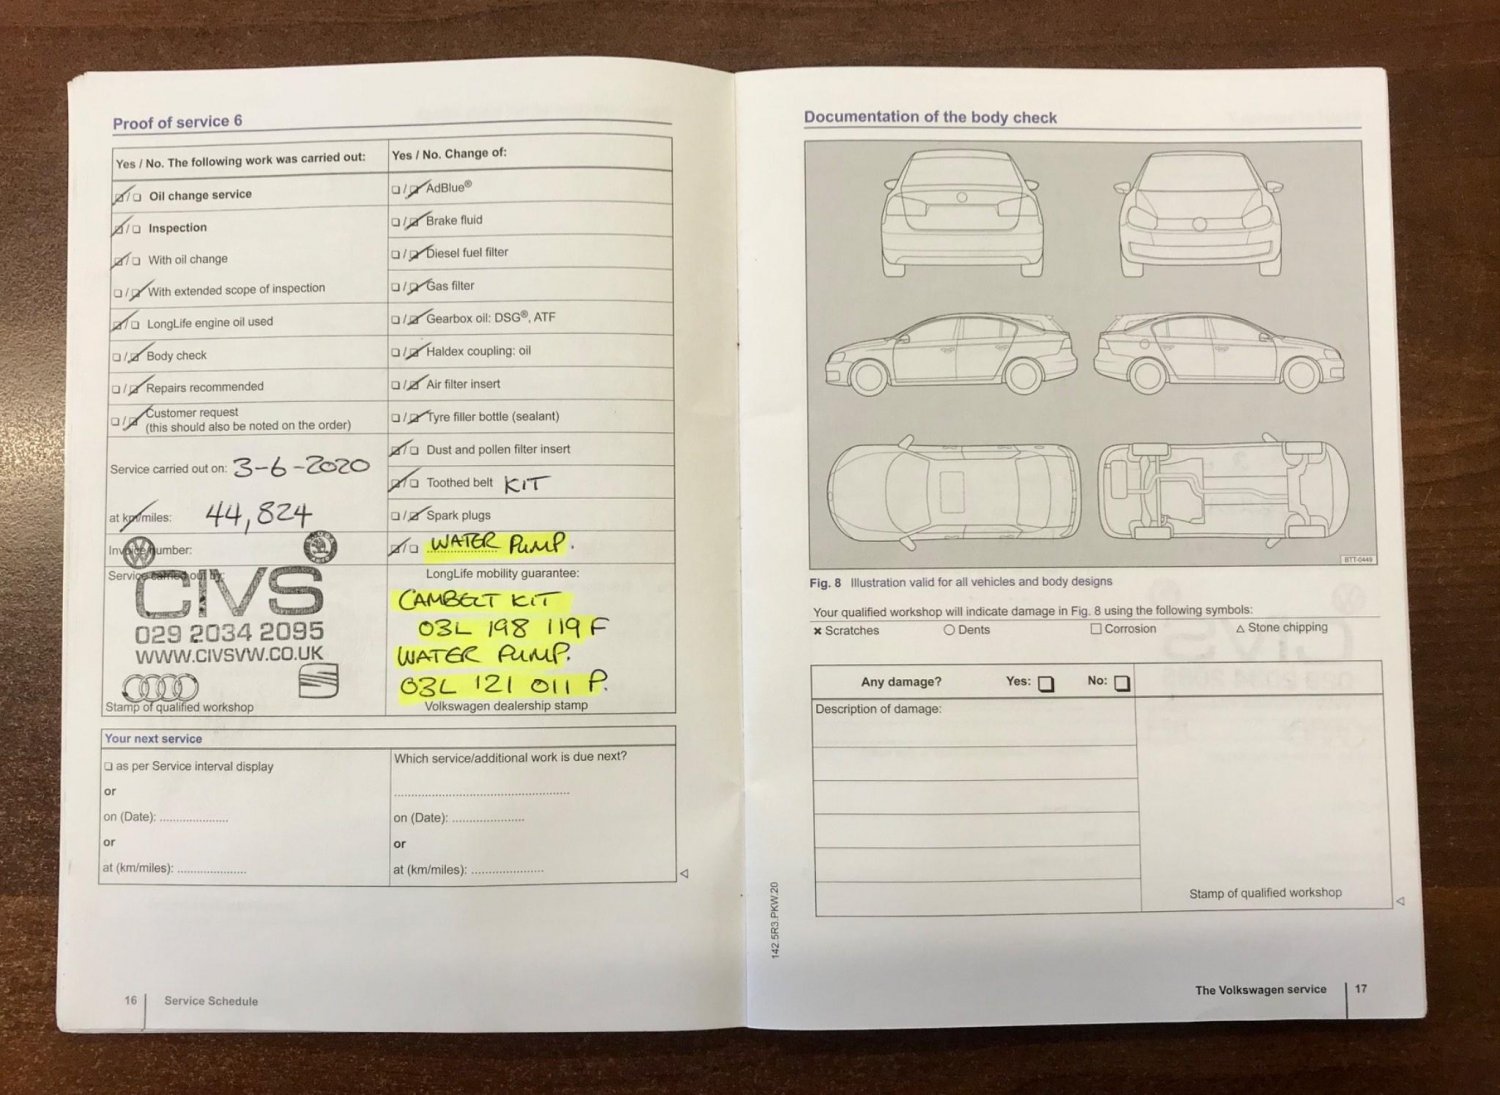 Proof of service 6
Yes / No. The following work was carried out:
Oil change service
Inspection
With oil change
With extended scope of inspection
LongLife engine oil used
Body check
Repairs recommended
Customer request
(this should also be noted on the order)
Service carried out on: 3-6-2020
at km/miles: 44,824
Invoice number:
Service carried out by:
CIVS
029 2034 2095
WWW.CIVSVW.CO.UK
Stamp of qualified workshop
Yes / No. Change of:
AdBlue®
Brake fluid
Diesel fuel filter
Gas filter
Gearbox oil: DSG®, ATF
Haldex coupling: oil
Air filter insert
Tyre filler bottle (sealant)
Dust and pollen filter insert
Toothed belt KIT
Spark plugs
WATER PUMP.
LongLife mobility guarantee:
CAMBELT KIT
03L 198 119 F
WATER PUMP.
03L 121 011 P.
Volkswagen dealership stamp
Your next service
as per Service interval display
or
on (Date): ....................
or
at (km/miles): ....................
Which service/additional work is due next?
..................................................
on (Date): ....................
or
at (km/miles): ....................
16 Service Schedule
Documentation of the body check
BTT-0449
Fig. 8 Illustration valid for all vehicles and body designs
Your qualified workshop will indicate damage in Fig. 8 using the following symbols:
× Scratches ○ Dents □ Corrosion △ Stone chipping
Any damage? Yes: □ No: □
Description of damage:
Stamp of qualified workshop
142.5R3.PKW.20
The Volkswagen service 17